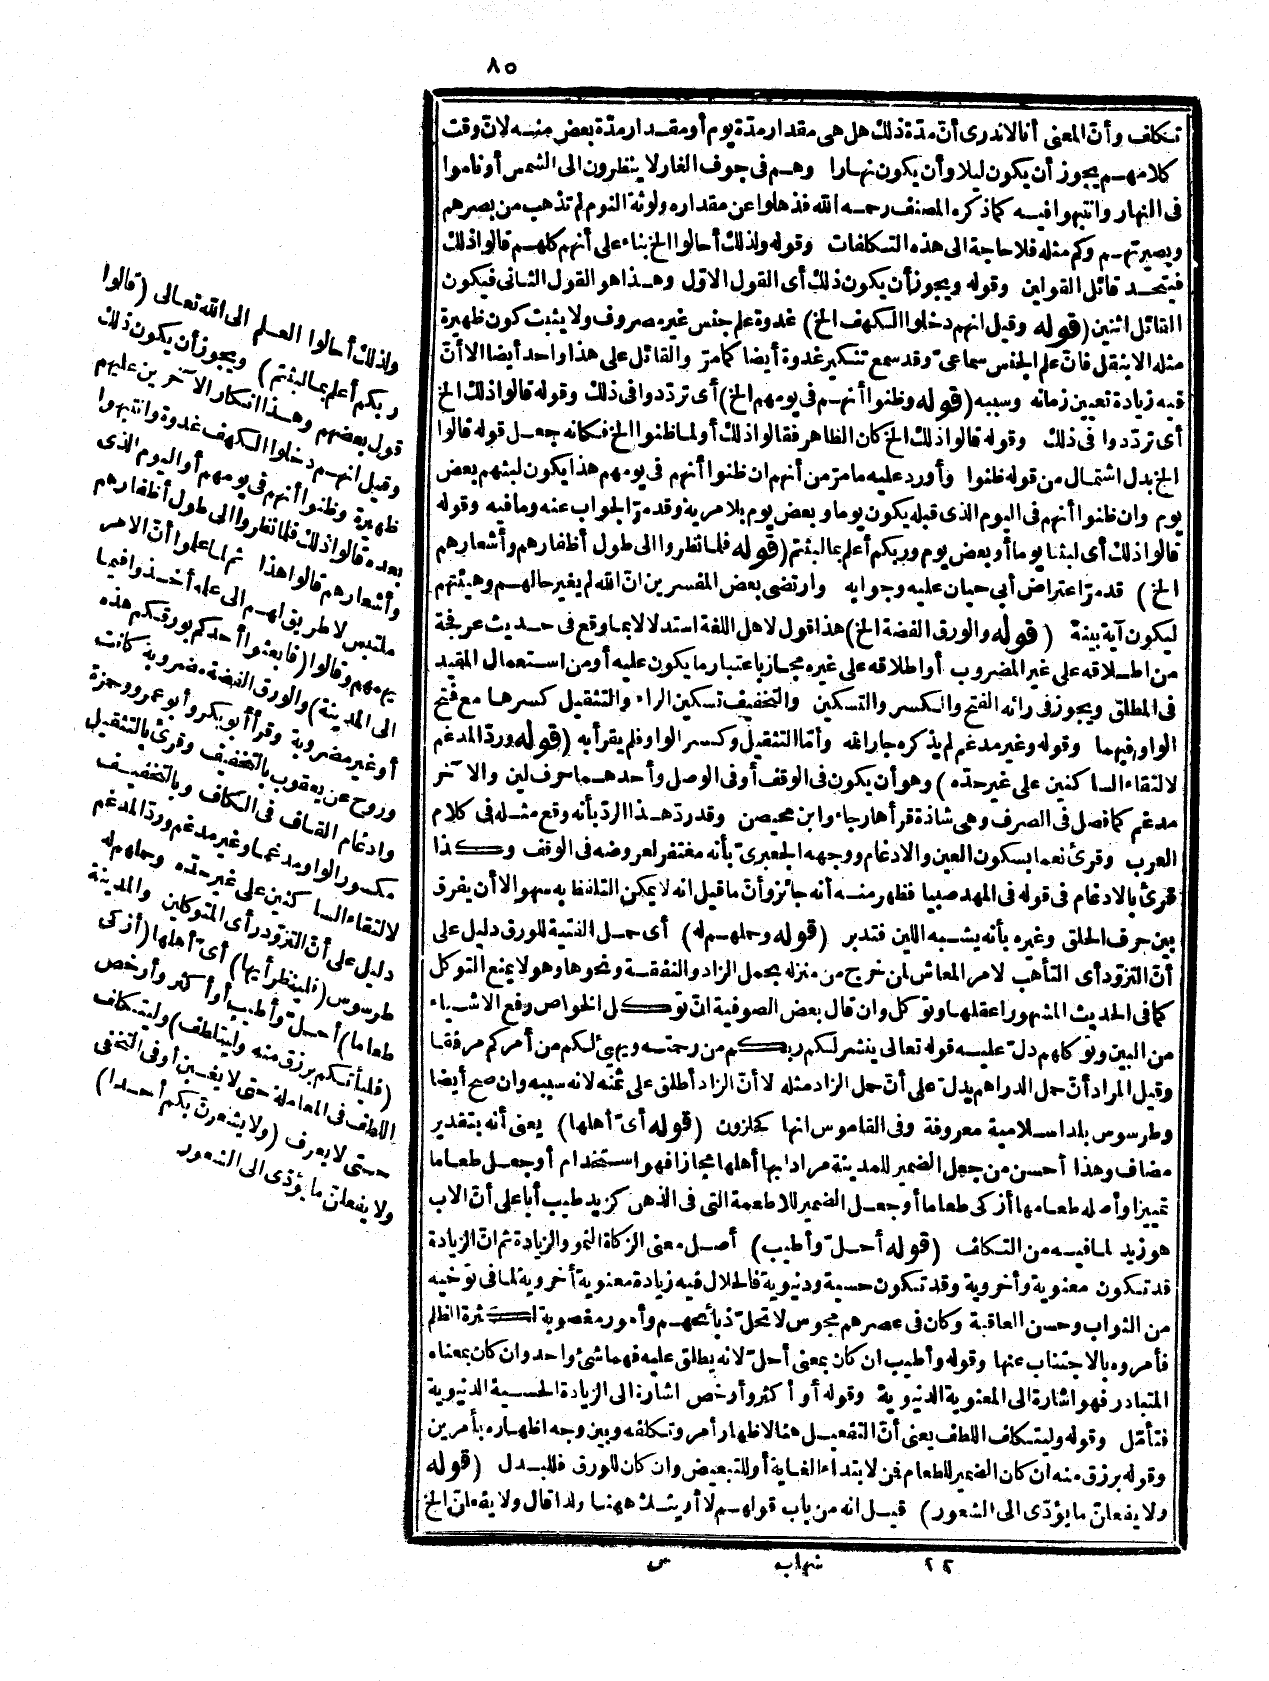 ٨٥
تكلف وأنّ المعنى أنا لا ندرى أنّ مدّة ذلك هل هى مقدار مدّة يوم أو مقدار مدّة بعض منه لانّ وقت
كلامهم يجوز أن يكون ليلا وأن يكون نهارا وهم فى جوف الغار لا ينظرون الى الشمس أو ناموا
فى النهار وانتبهوا فيه كما ذكره المصنف رحمه الله فذهلوا عن مقداره ولوثة النوم لم تذهب من بصرهم
وبصيرتهم وكم مثله فلا حاجة الى هذه التكلفات وقوله ولذلك أحالوا الخ بناء على أنهم كلهم قالوا ذلك
فيتحد قائل القولين وقوله ويجوز أن يكون ذلك أى القول الاوّل وهذا هو القول الثانى فيكون
القائل اثنين (قوله وقيل انهم دخلوا الكهف الخ) غدوة علم جنس غير مصروف ولا يثبت كون ظهيرة
مثله الا بنقل فانّ علم الجنس سماعىّ وقد سمع تنكير غدوة أيضا كما مرّ والقائل على هذا واحد أيضا الا أنّ
فيه زيادة تعيين زمانه وسببه (قوله وظنوا أنهم فى يومهم الخ) أى تردّدوا فى ذلك وقوله قالوا ذلك الخ
أى تردّدوا فى ذلك وقوله قالوا ذلك الخ كان الظاهر فقالوا ذلك أو لما ظنوا الخ فكانه جعل قوله قالوا
الخ بدل اشتمال من قوله ظنوا وأورد عليه ما مرّ من أنهم ان ظنوا أنهم فى يومهم هذا يكون لبثهم بعض
يوم وان ظنوا أنهم فى اليوم الذى قبله يكون يوما وبعض يوم بلا مرية وقد مرّ الجواب عنه وما فيه وقوله
قالوا ذلك أى لبثنا يوما أو بعض يوم وربكم أعلم بما لبثتم (قوله فلما نظروا الى طول أظفارهم وأشعارهم
الخ) قد مرّ اعتراض أبى حيان عليه وجوابه وارتضى بعض المفسرين انّ الله لم يغير حالهم وهيئتهم
ليكون آية بينة (قوله والورق الفضة الخ) هذا قول لاهل اللغة استدلالا بما وقع فى حديث عرفجة
من اطلاقه على غير المضروب أو اطلاقه على غيره مجاز باعتبار ما يكون عليه أو من استعمال المقيد
فى المطلق ويجوز فى رائه الفتح والكسر والتسكين والتخفيف تسكين الراء والتثقيل كسرها مع فتح
الواو فيهما وقوله وغير مدغم لم يذكره جار الله وأمّا التثقيل وكسر الواو فلم يقرأ به (قوله وردّ المدغم
لالتقاء الساكنين على غير حدّه) وهو أن يكون فى الوقف أو فى الوصل وأحدهما حرف لين والآخر
مدغم كما فصل فى الصرف وهى شاذة قرأها رجاء وابن محيصن وقد ردّ هذا الردّ بأنه وقع مثله فى كلام
العرب وقرئ نعما بسكون العين والادغام ووجهه الجعبرىّ بأنه مغتفر لعروضه فى الوقف وكذا
قرئ بالادغام فى قوله فى المهد صبيا فظهر منه أنه جائز وأنّ ما قيل انه لا يمكن التلفظ به سهو الا أن يفرق
بين حرف الحلق وغيره بأنه يشبه اللين فتدبر (قوله وحملهم له) أى حمل الفتية للورق دليل على
أنّ التزوّد أى التأهب لامر المعاش لمن خرج من منزله بحمل الزاد والنفقة ونحوها وهو لا يمنع التوكل
كما فى الحديث المشهور اعقلها وتوكل وان قال بعض الصوفية انّ توكل الخواص رفع الاشياء
من البين وتوكلهم دلّ عليه قوله تعالى ينشر لكم ربكم من رحمته ويهئ لكم من أمركم مرفقا
وقيل المراد أنّ حمل الدراهم يدلّ على أنّ حمل الزاد مثله لا أنّ الزاد أطلق على ثمنه لانه سببه وان صح أيضا
وطرسوس بلد اسلامية معروفة وفى القاموس انها كحلزون (قوله أىّ أهلها) يعنى أنه بتقدير
مضاف وهذا أحسن من جعل الضمير للمدينة مرادا بها أهلها مجازا فهو استخدام أو جعل طعاما
تمييزا وأصله طعامها أزكى طعاما أو جعل الضمير للاطعمة التى فى الذهن كزيد طيب أبا على أنّ الاب
هو زيد لما فيه من التكلف (قوله أحلّ وأطيب) أصل معنى الزكاة النمو والزيادة ثم انّ الزيادة
قد تكون معنوية وأخروية وقد تكون حسية ودنيوية فالحلال فيه زيادة معنوية أخروية لما فى توخيه
من الثواب وحسن العاقبة وكان فى عصرهم مجوس لا تحلّ ذبائحهم وأمور مغصوبة لكثرة الظلم
فأمروه بالاجتناب عنها وقوله وأطيب ان كان بمعنى أحلّ لانه يطلق عليه فهما شئ واحد وان كان بمعناه
المتبادر فهو اشارة الى المعنوية الدنيوية وقوله أو أكثر وأرخص اشارة الى الزيادة الحسية الدنيوية
فتأمّل وقوله وليتكلف اللطف يعنى أنّ التفعيل هنا لاظهار أمر وتكلفه وبين وجه اظهاره بأمرين
وقوله برزق منه ان كان الضمير للطعام فمن لابتداء الغاية أو للتبعيض وان كان للورق فللبدل (قوله
ولا يفعلنّ ما يؤدّى الى الشعور) قيل انه من باب قولهم لا أرينك ههنا ولذا قال ولا يفعلنّ الخ
٢٢ شهاب س
ولذلك أحالوا العلم الى الله تعالى (قالوا
ربكم أعلم بما لبثتم) ويجوز أن يكون ذلك
قول بعضهم وهذا انكار الآخرين عليهم
وقيل انهم دخلوا الكهف غدوة وانتبهوا
ظهيرة وظنوا أنهم فى يومهم أو اليوم الذى
بعده قالوا ذلك فلما نظروا الى طول أظفارهم
وأشعارهم قالوا هذا ثم لما علموا أنّ الامر
ملتبس لا طريق لهم الى علمه أخذوا فيما
يهمهم وقالوا (فابعثوا أحدكم بورقكم هذه
الى المدينة) والورق الفضة مضروبة كانت
أو غير مضروبة وقرأ أبو بكر وأبو عمرو وحمزة
وروح عن يعقوب بالتخفيف وقرئ بالتثقيل
وادغام القاف فى الكاف وبالتخفيف
مكسور الواو مدغما وغير مدغم وردّ المدغم
لالتقاء الساكنين على غير حدّه وحملهم له
دليل على أنّ التزوّد رأى المتوكلين والمدينة
طرسوس (فلينظر أيها) أىّ أهلها (أزكى
طعاما) أحلّ وأطيب أو أكثر وأرخص
(فليأتكم برزق منه وليتلطف) وليتكلف
اللطف فى المعاملة حتى لا يغبن أو فى التخفى
حتى لا يعرف (ولا يشعرنّ بكم أحدا)
ولا يفعلنّ ما يؤدّى الى الشعور